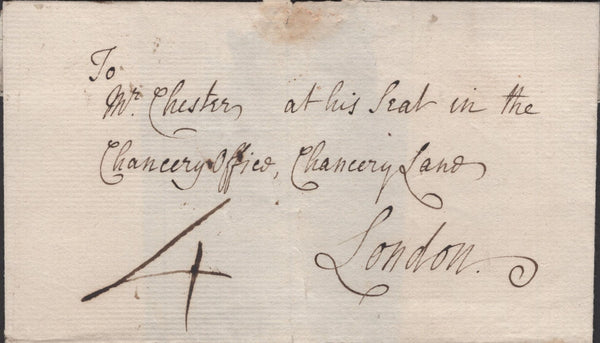 To
Mr. Chester at his Seat in the
Chancery Office, Chancery Lane
4 London.